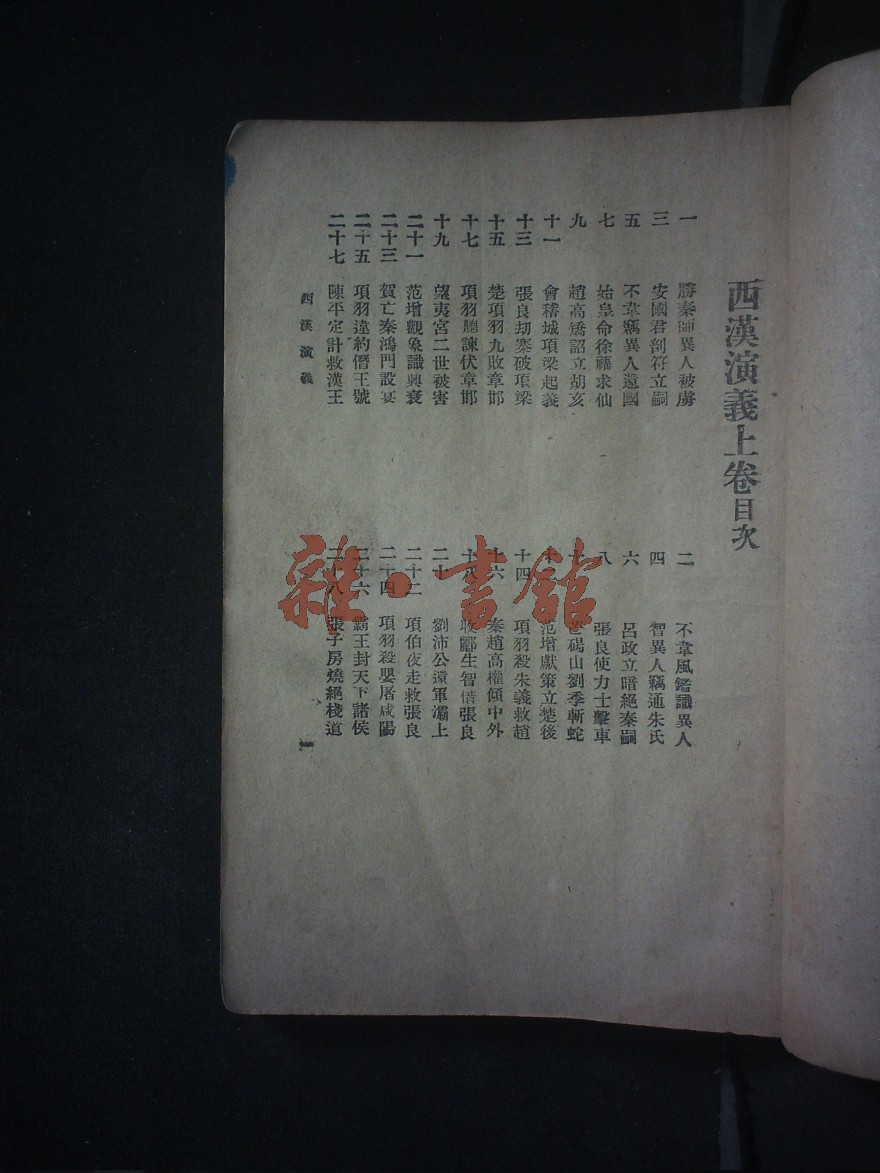 西漢演義上卷目次
一 勝秦師異人被虜
二 不韋風鑑識異人
三 安國君剖符立嗣
四 智異人竊通朱氏
五 不韋竊異人還國
六 呂政立暗絕秦嗣
七 始皇命徐福求仙
八 張良使力士擊車
九 趙高矯詔立胡亥
碭山劉季斬蛇
十一 會稽城項梁起義
范增獻策立楚後
十三 張良劫寨破項梁
十四 項羽殺朱義救趙
十五 楚項羽九敗章邯
十六 秦趙高權傾中外
十七 項羽聽諫伏章邯
十八 收酈生智借張良
十九 望夷宮二世被害
二十 劉沛公還軍灞上
二十一 范增觀象識興衰
二十二 項伯夜走救張良
二十三 賀亡秦鴻門設宴
二十四 項羽殺嬰屠咸陽
二十五 項羽違約僭王號
二十六 霸王封天下諸侯
二十七 陳平定計救漢王
二十八 張子房燒絕棧道
西漢演義
一
雜·書館